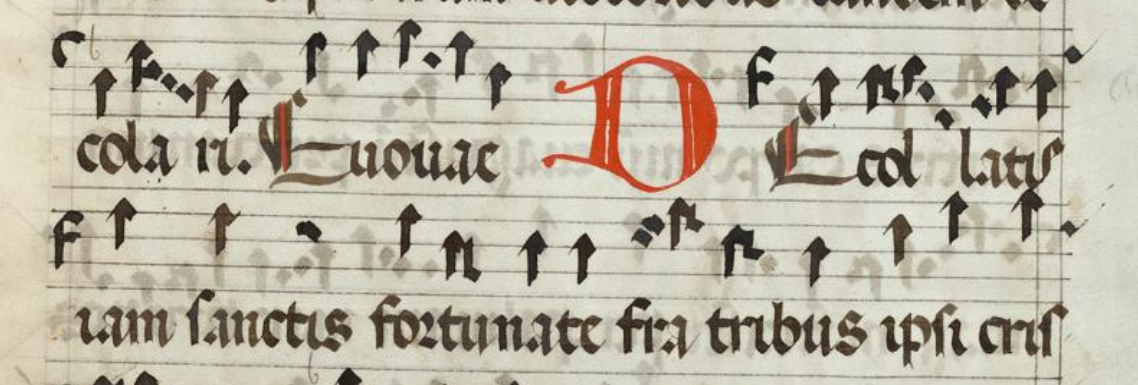 cola ri. Euouae D Ecol latis
iam sanctis fortunate fra tribus ipsi cris